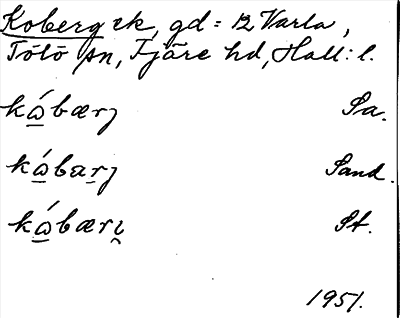 Koberg ek, gd = 12 Varla,
Tölö sn, Fjäre hd, Hall: l.
kábærȷ Sa.
kába̱rȷ Sand.
kábæri̮ St.
1951.